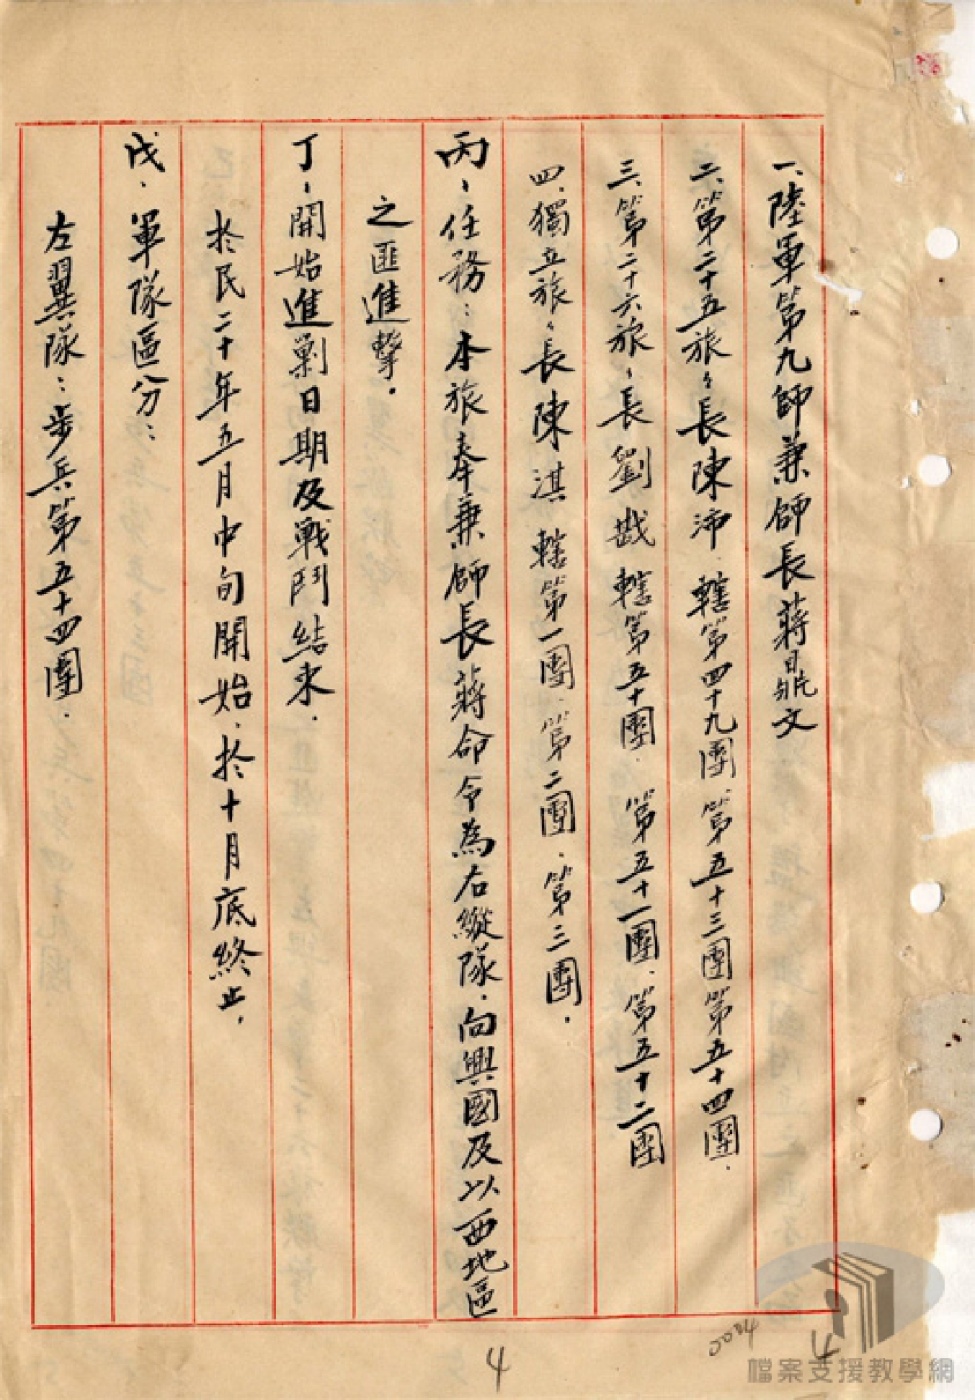 一、陸軍第九師兼師長蔣鼎文
二、第二十五旅〻長陳沛．轄第四十九團、第五十三團第五十四團．
三、第二十六旅〻長劉戡轄第五十團．第五十一團．第五十二團
四、獨立旅〻長陳淇轄第一團．第二團．第三團．
丙、任務：本旅奉兼師長蔣命令為右縱隊．向興國及以西地區
之匪進擊．
丁、開始進剿日期及戰鬥結束．
於民二十年五月中旬開始．於十月底終止．
戊、軍隊區分：
左翼隊：步兵第五十四團．
0004
4
4
檔案支援教學網